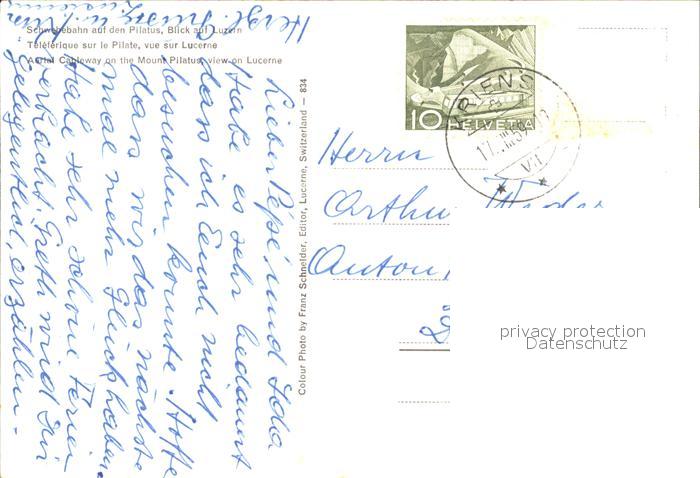 Schwebebahn auf den Pilatus, Blick auf Luzern
Téléférique sur le Pilate, vue sur Lucerne
Aerial Cableway on the Mount Pilatus, view on Lucerne
Lieber Pepi, und Ida
Habe es sehr bedauert
dass ich Euch nicht
besuchen konnte. Hoffe
dass wir das nächste
mal mehr Glück haben.
Habe sehr schöne Ferien
verbracht. Greth wird Dir
gelegentlich erzählen.
Herzl. Grüsse
Colour Photo by Franz Schneider, Editor, Lucerne, Switzerland — 834
10 HELVETIA
KRIENS
17. VIII 5
Herrn
Arthu
Anton
privacy protection
Datenschutz